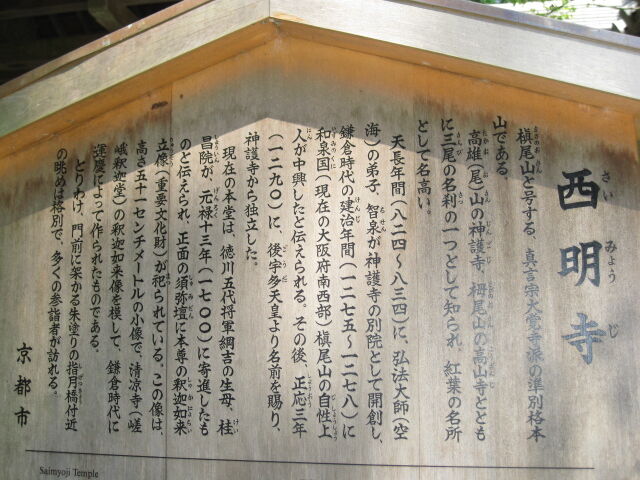 西明寺
槇尾山と号する、真言宗大覚寺派の準別格本
山である。
高雄(尾)山の神護寺、栂尾山の高山寺ととも
に三尾の名刹の一つとして知られ、紅葉の名所
として名高い。
天長年間(八二四〜八三四)に、弘法大師(空
海)の弟子、智泉が神護寺の別院として開創し、
鎌倉時代の建治年間(一二七五〜一二七八)に
和泉国(現在の大阪府南西部)槇尾山の自性上
人が中興したと伝えられる。その後、正応三年
(一二九〇)に、後宇多天皇より名前を賜り、
神護寺から独立した。
現在の本堂は、徳川五代将軍綱吉の生母、桂
昌院が、元禄十三年(一七〇〇)に寄進したも
のと伝えられ、正面の須弥壇に本尊の釈迦如来
立像(重要文化財)が祀られている。この像は、
高さ五十一センチメートルの小像で、清凉寺(嵯
峨釈迦堂)の釈迦如来像を模して、鎌倉時代に
運慶によって作られたものである。
とりわけ、門前に架かる朱塗りの指月橋付近
の眺めは格別で、多くの参詣者が訪れる。
京都市
Saimyoji Temple